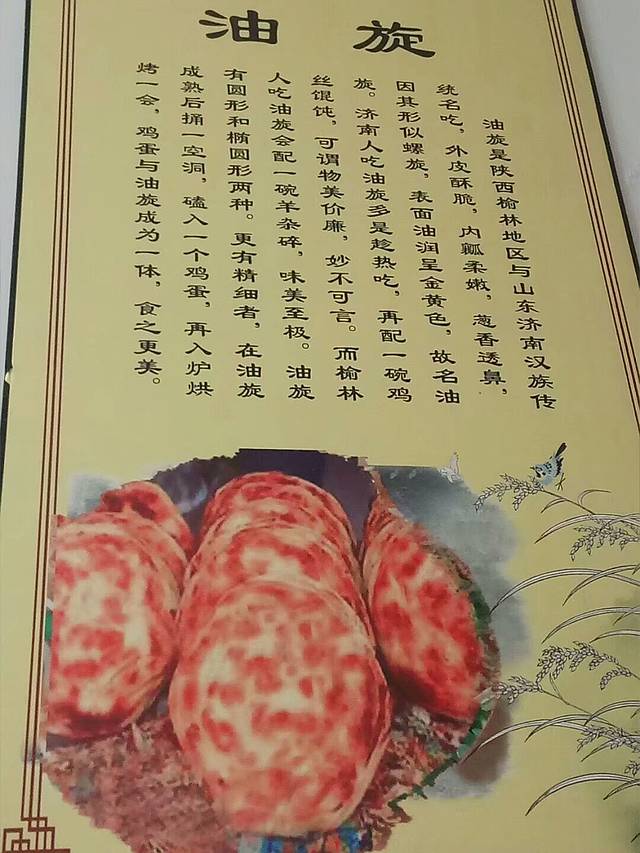 油旋
油旋是陕西榆林地区与山东济南汉族传
统名吃，外皮酥脆，内瓤柔嫩，葱香透鼻，
因其形似螺旋，表面油润呈金黄色，故名油
旋。济南人吃油旋多是趁热吃，再配一碗鸡
丝馄饨，可谓物美价廉，妙不可言。而榆林
人吃油旋会配一碗羊杂碎，味美至极。油旋
有圆形和椭圆形两种。更有精细者，在油旋
成熟后捅一空洞，磕入一个鸡蛋，再入炉烘
烤一会，鸡蛋与油旋成为一体，食之更美。